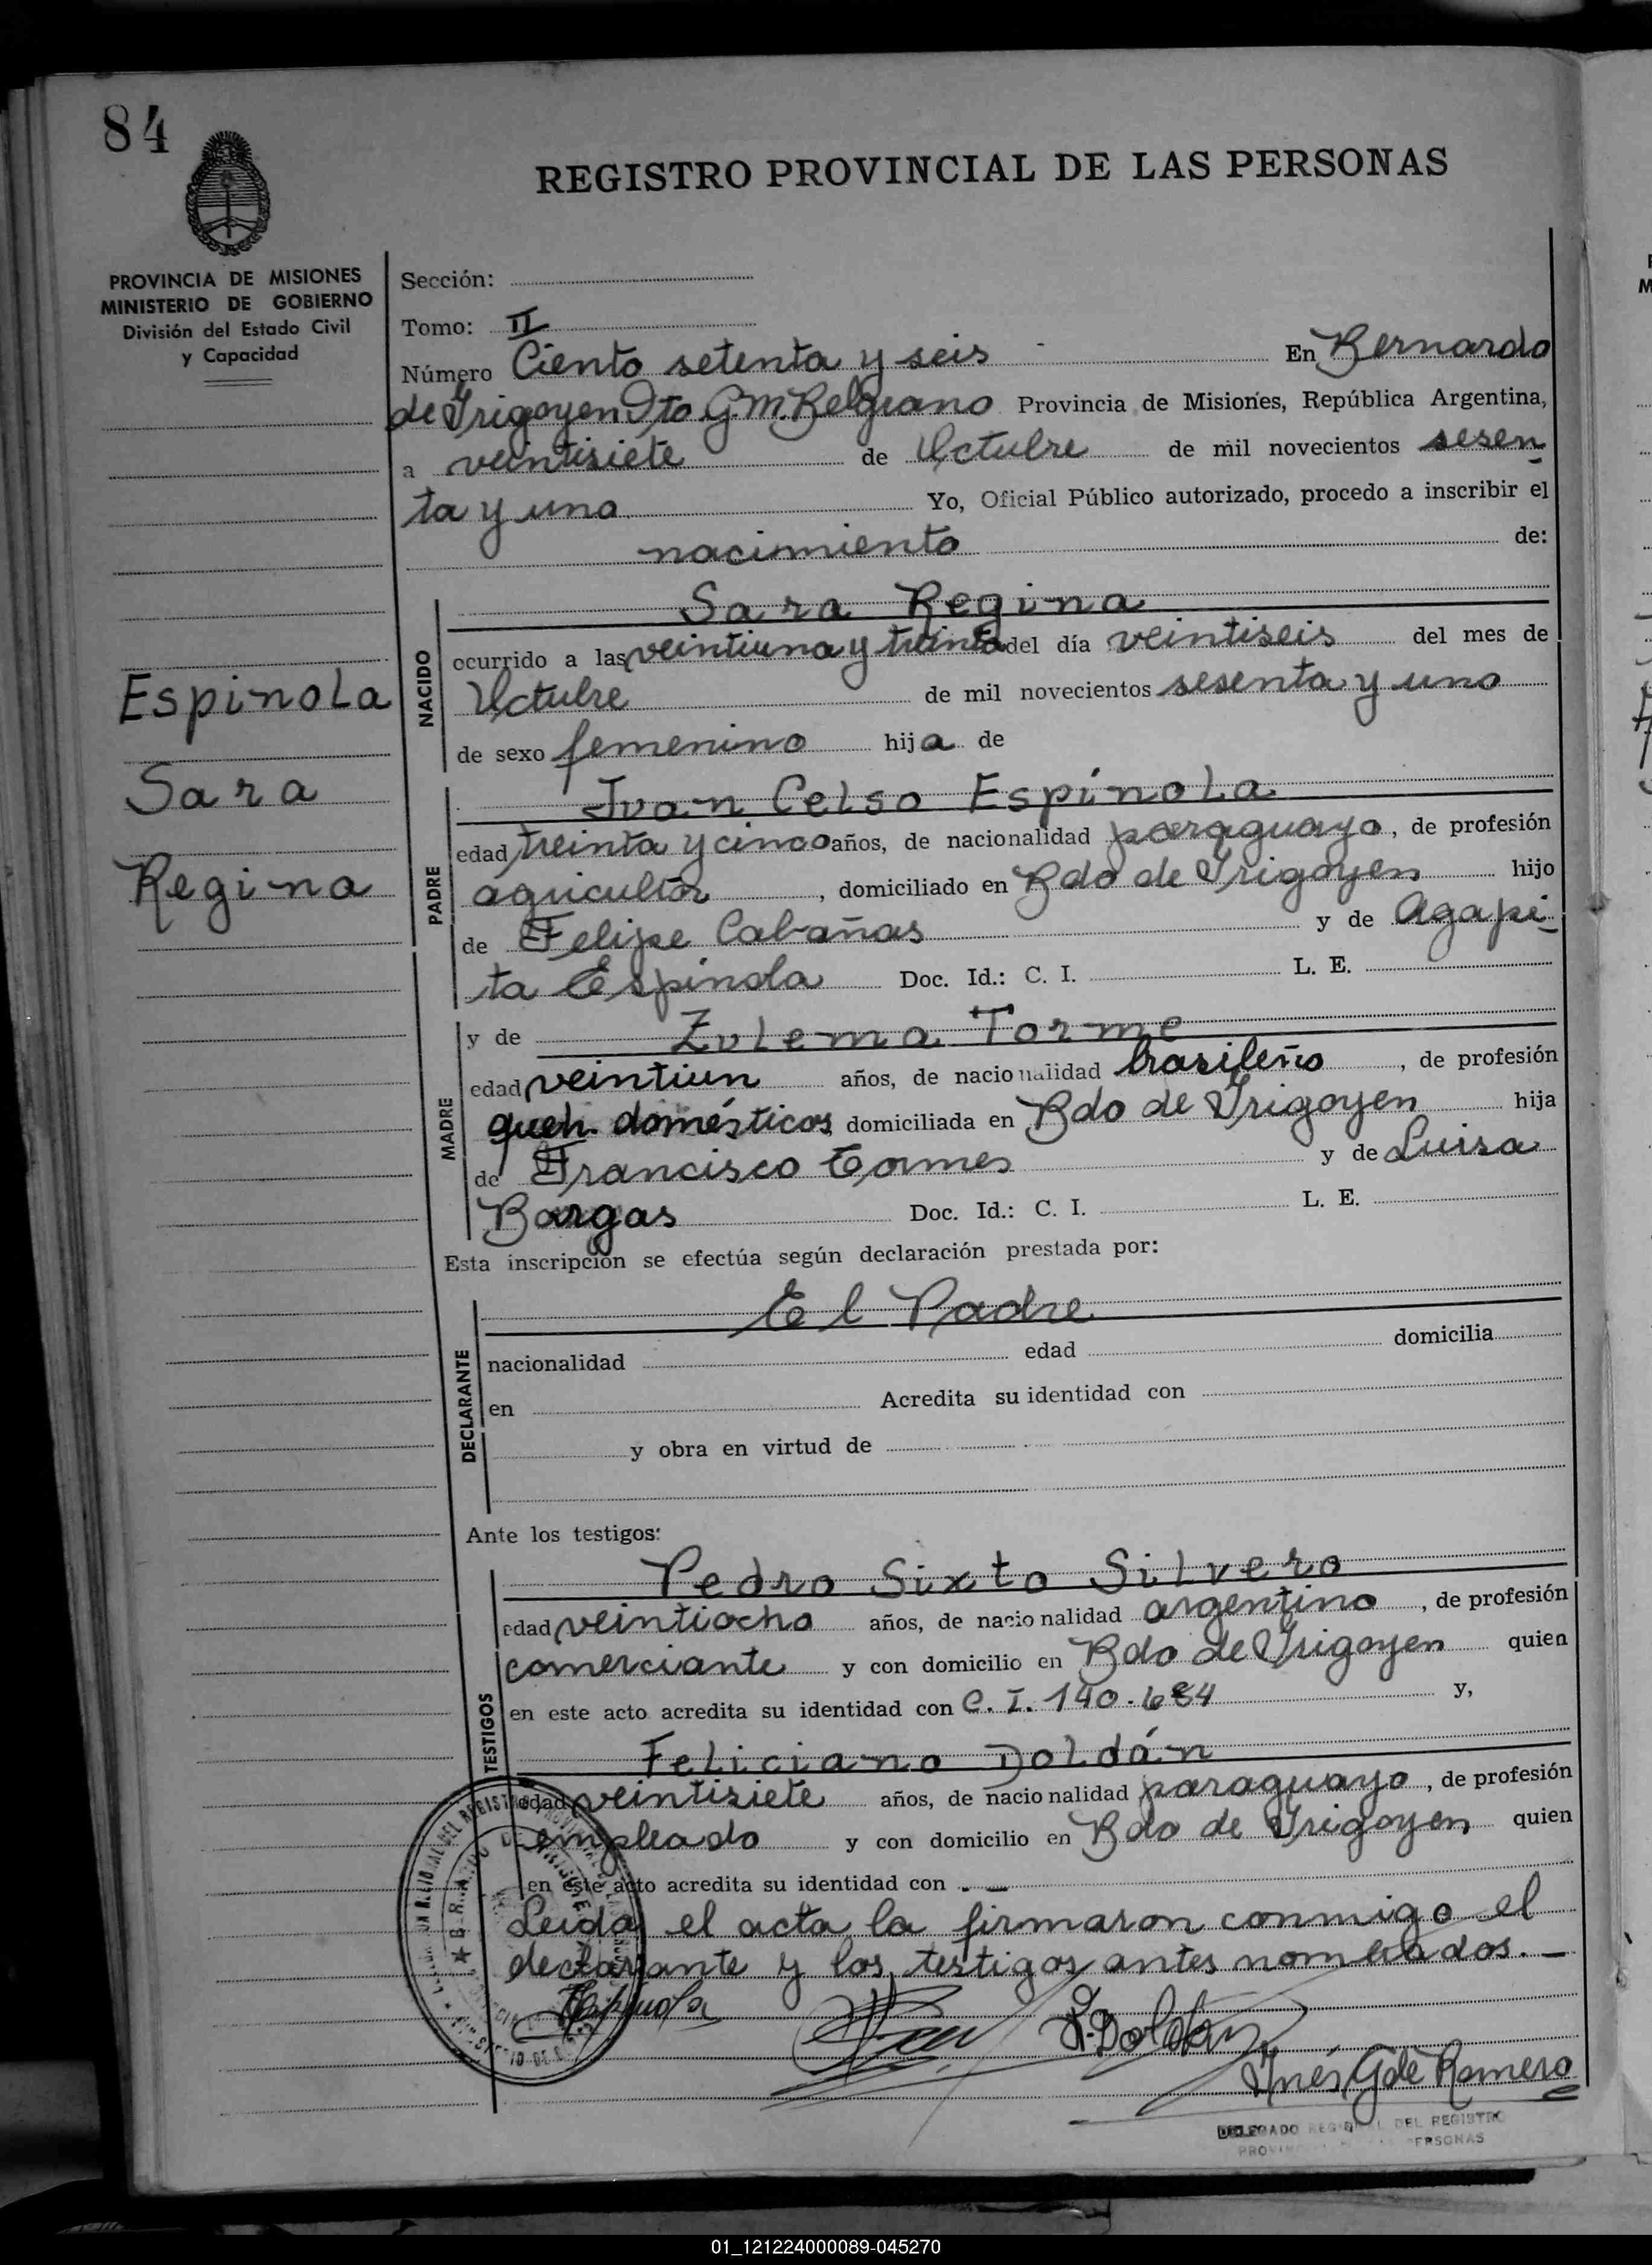 84
REGISTRO PROVINCIAL DE LAS PERSONAS
PROVINCIA DE MISIONES
MINISTERIO DE GOBIERNO
División del Estado Civil
y Capacidad
Espinola
Sara
Regina
Sección:
Tomo: II
Número Ciento setenta y seis En Bernardo
de Irigoyen Dto. G.M. Belgrano Provincia de Misiones, República Argentina,
a veintisiete de Octubre de mil novecientos sesen
ta y uno Yo, Oficial Público autorizado, procedo a inscribir el
nacimiento de:
NACIDO
Sara Regina
ocurrido a las veintiuna y treinta del día veintiseis del mes de
Octubre de mil novecientos sesenta y uno
de sexo femenino hija de
PADRE
Juan Celso Espínola
edad treinta y cinco años, de nacionalidad paraguayo, de profesión
agricultor, domiciliado en Bdo de Irigoyen hijo
de Felipe Cabañas y de Agapi-
ta Espínola Doc. Id.: C. I. L. E.
MADRE
y de Zulema Torme
edad veintiun años, de nacionalidad brasileño, de profesión
queh. domésticos domiciliada en Bdo de Irigoyen hija
de Francisco Tormes y de Luisa
Bargas Doc. Id.: C. I. L. E.
Esta inscripción se efectúa según declaración prestada por:
DECLARANTE
El Padre
nacionalidad edad domicilia
en Acredita su identidad con
y obra en virtud de
Ante los testigos:
TESTIGOS
Pedro Sixto Silvero
edad veintiocho años, de nacionalidad argentino, de profesión
comerciante y con domicilio en Bdo de Irigoyen quien
en este acto acredita su identidad con C. I. 140.684 y,
Feliciano Doldán
edad veintisiete años, de nacionalidad paraguayo, de profesión
empleado y con domicilio en Bdo de Irigoyen quien
en este acto acredita su identidad con . —
Leida el acta la firmaron conmigo el
declarante y los testigos antes nombrados. —
Espinola
F. Doldán
Inés G de Romero
DELEGADO REGIONAL DEL REGISTRO
PERSONAS
01_121224000089-045270